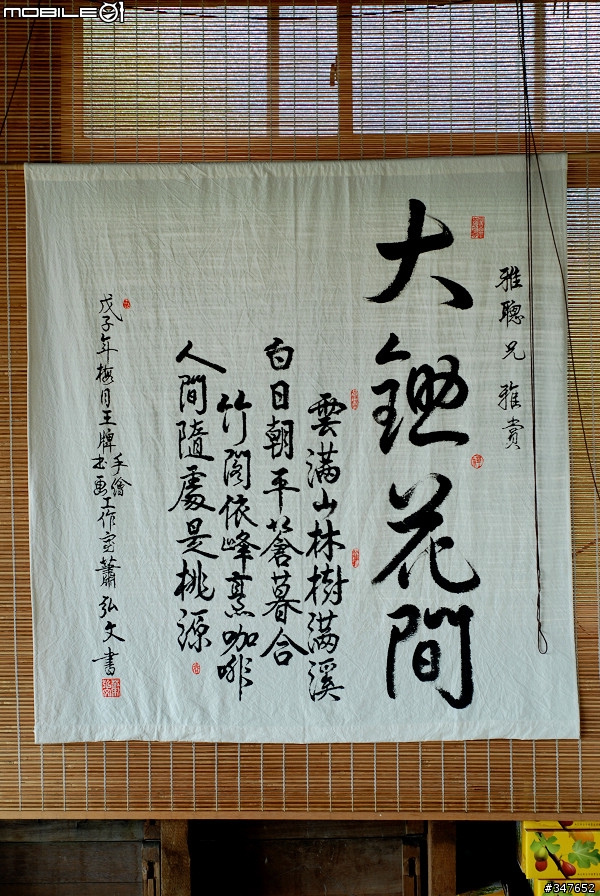 MOBILE01
雅聰兄 雅賞
大鋤花間
雲滿山林樹滿溪
白日朝平蒼暮合
竹閣依峰烹咖啡
人間隨處是桃源
戊子年梅月王牌手繪书画工作室蕭弘文書
#347652